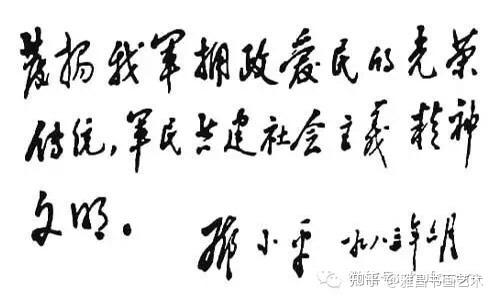 发扬我军拥政爱民的光荣
传统，军民共建社会主义精神
文明。
邓小平 一九八三年六月
知乎 @雅昌书画艺术